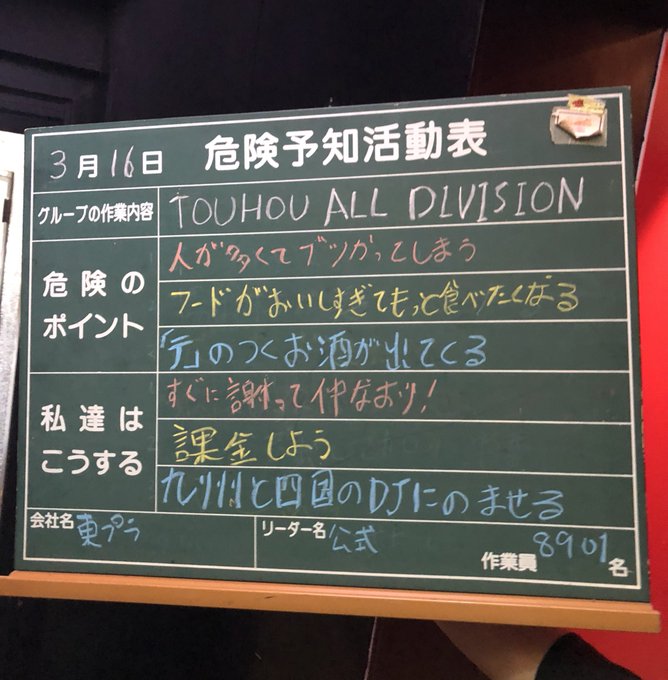 3月16日 危険予知活動表
グループの作業内容 TOUHOU ALL DIVISION
危険のポイント
人が多くてブツかってしまう
フードがおいしすぎてもっと食べたくなる
「テ」のつくお酒が出てくる
私達はこうする
すぐに謝って仲なおり!
課金しよう
九州と四国のDJにのませる
会社名 東プラ リーダー名 公式 作業員 8901名